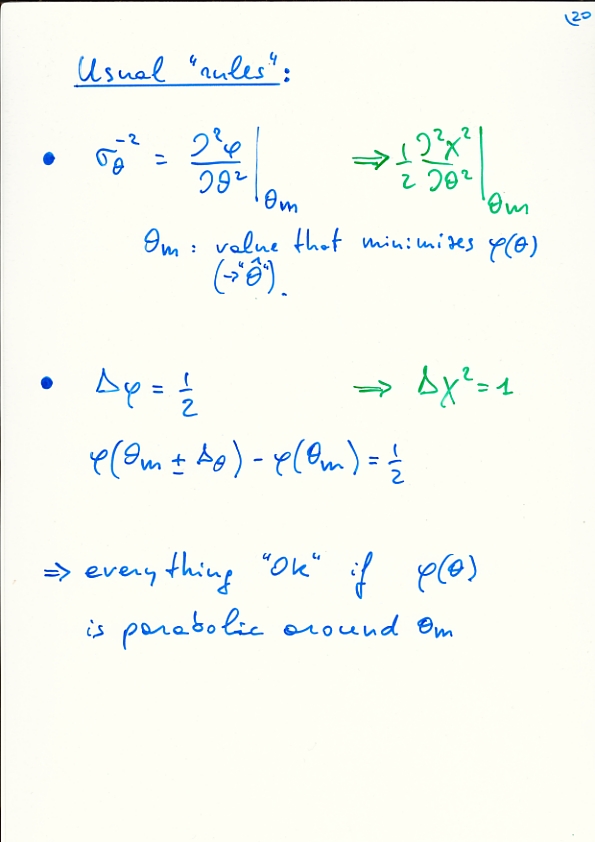 20
Usual "rules":
• σ_θ^{-2} = ∂²φ/∂θ² |_{θm} ⇒ 1/2 ∂²χ²/∂θ² |_{θm}
θm : value that minimises φ(θ)
(→"θ̂").
• Δφ = 1/2 ⇒ Δχ² = 1
φ(θm ± Δθ) - φ(θm) = 1/2
⇒ everything "Ok" if φ(θ)
is parabolic around θm